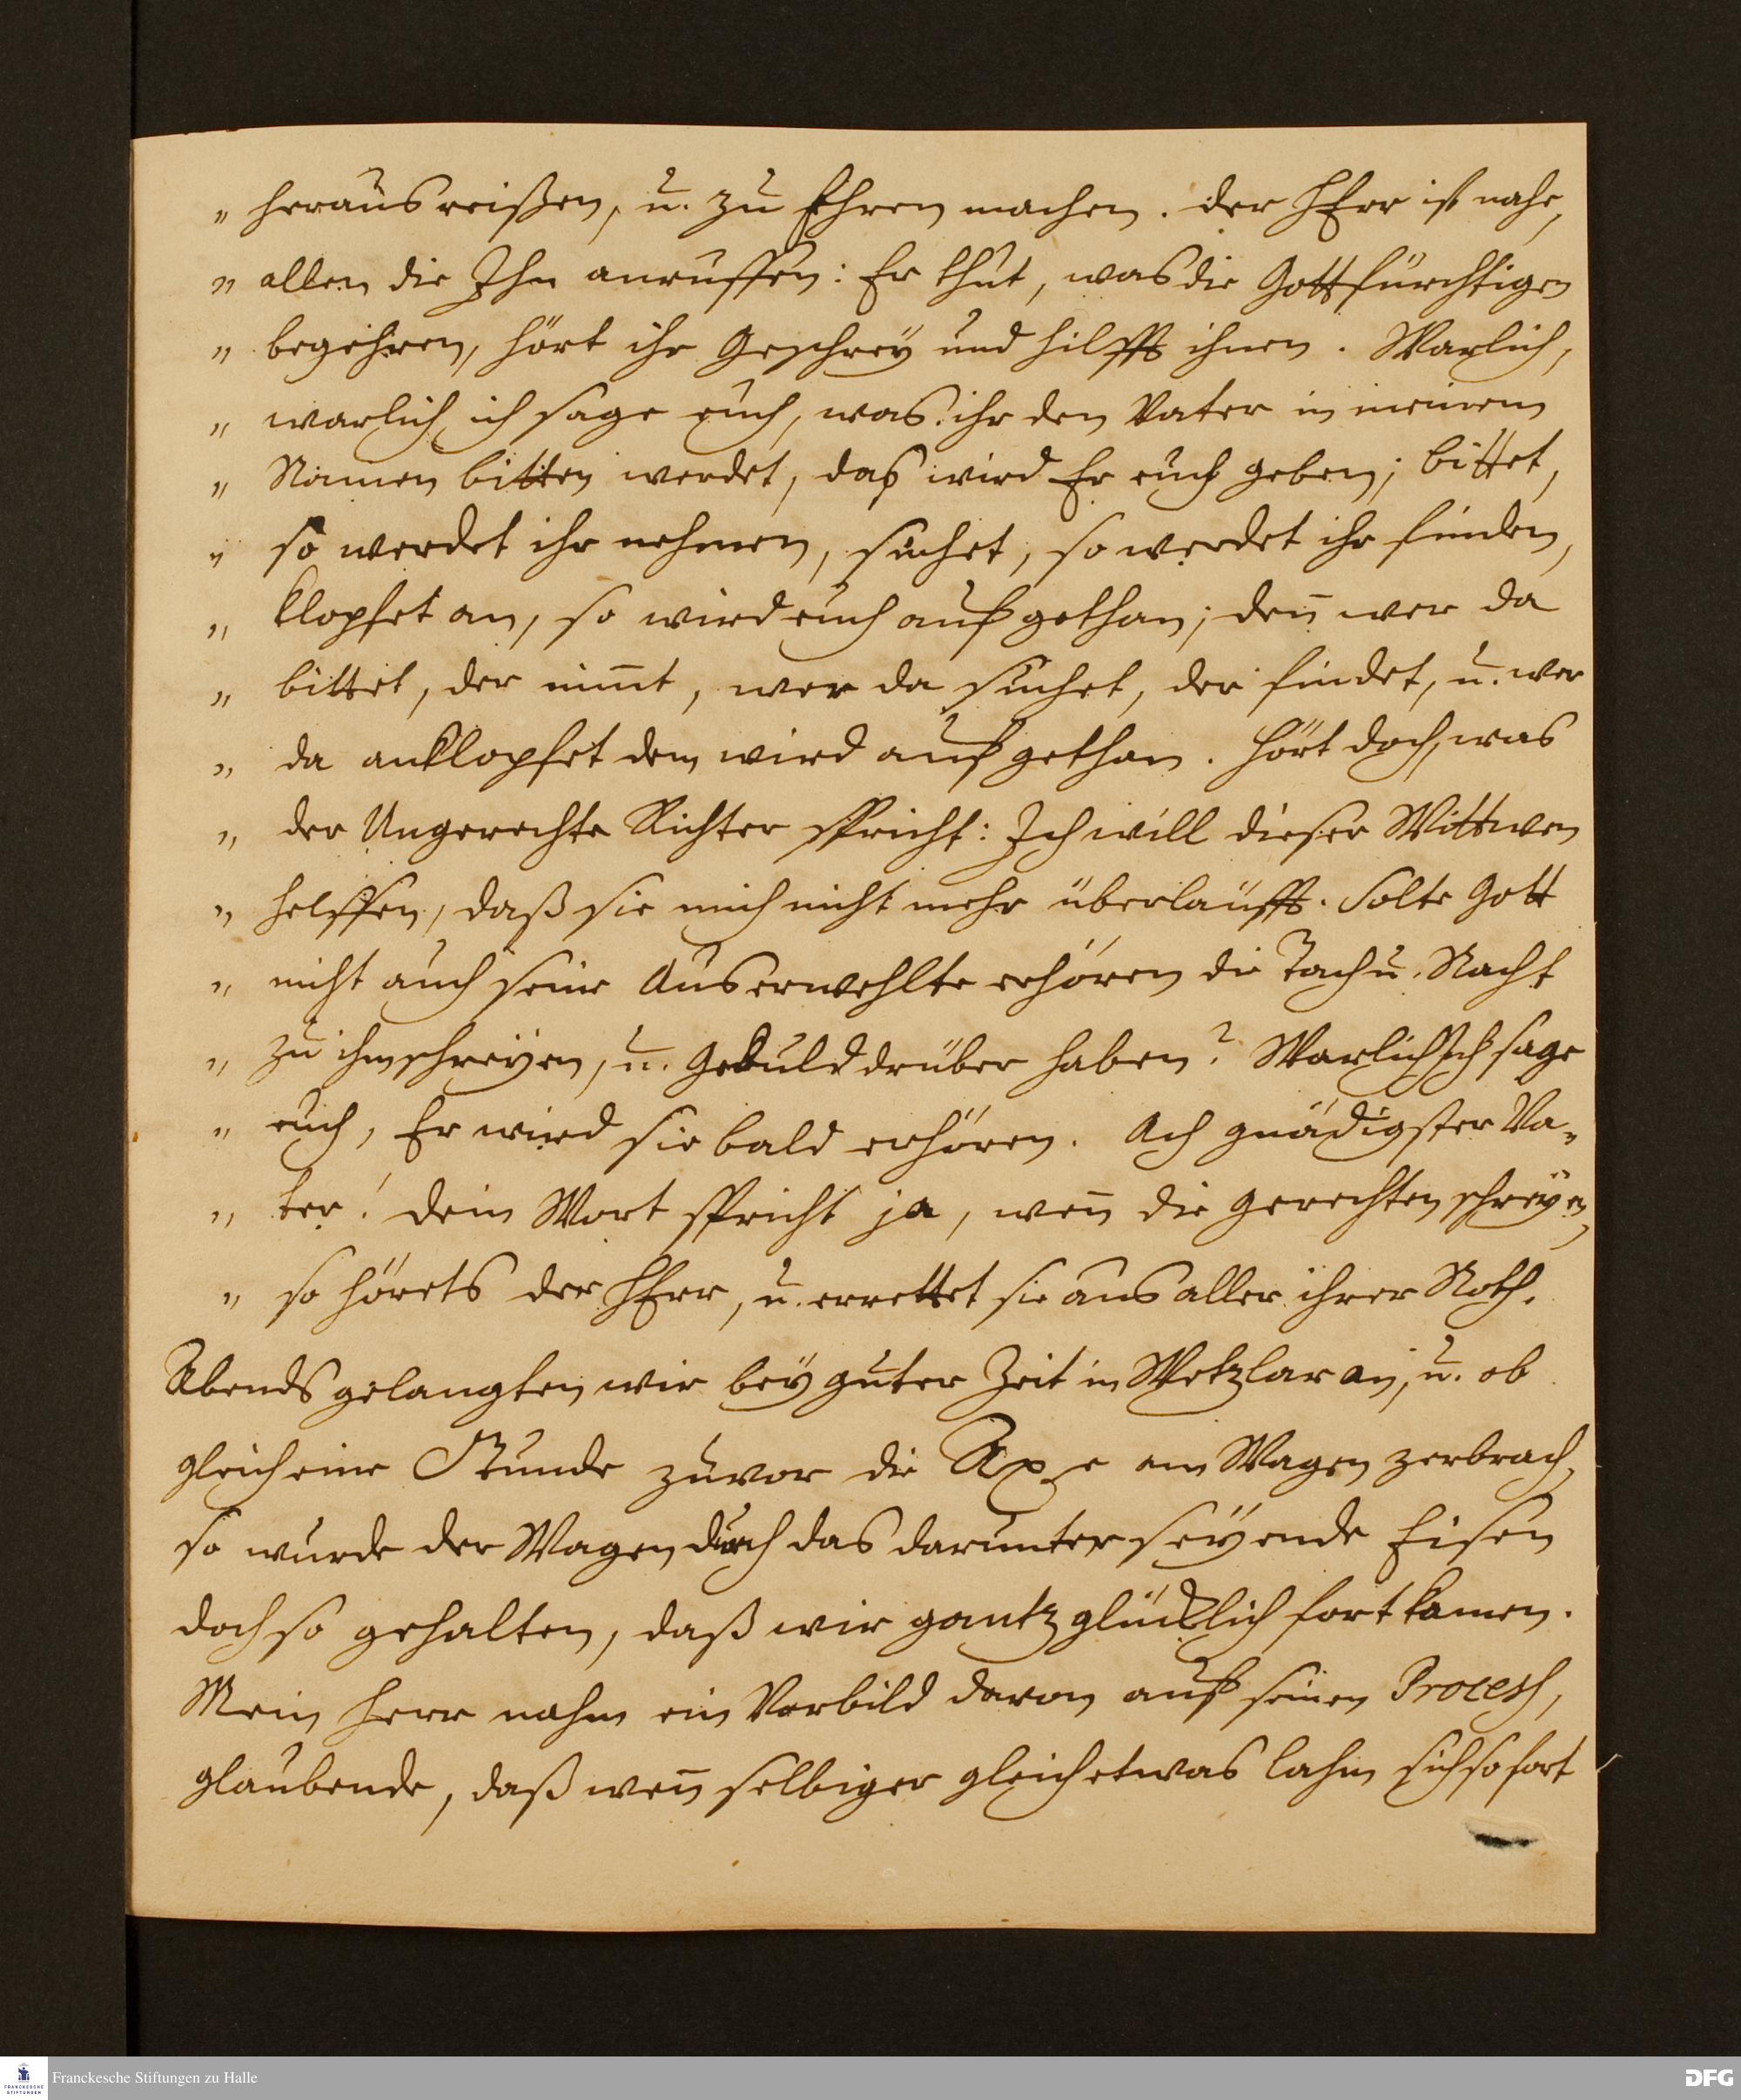 „ herausreißen, u. zu Ehren machen. der HErr ist nahe,
„ allen die Ihn anruffen: Er thut, was die Gottfürchtigen
„ begehren, hört ihr Geschrey und hilfft ihnen. Warlich,
„ warlich ich sage euch, was ihr den Vater in meinem
„ Namen bitten werdet, das wird Er euch geben; bittet,
„ so werdet ihr nehmen, suchet, so werdet ihr finden,
„ klopfet an, so wird euch aufgethan; deñ wer da
„ bittet, der nim̃t, wer da suchet, der findet, u. wer
„ da anklopfet dem wird aufgethan. hört doch, was
„ der Ungerechte Richter spricht: Ich will dieser Wittwen
„ helffen, daß sie mich nicht mehr überläufft. Solte Gott
„ nicht auch seine Auserwehlte erhören die Tach u. Nacht
„ zu ihm schreyen, u. Geduld drüber haben? Warlich Ich sage
„ euch, Er wird sie bald erhören. Ach gnädigster Va-
„ ter! dein Wort spricht ja, weñ die Gerechten schreyen,
„ so hörets der HErr, u. errettet sie aus aller ihrer Noth.
Abends gelangten wir bey guter Zeit in Wetzlar an, u. ob
gleich eine Stunde zuvor die Axe am Wagen zerbrach,
so wurde der Wagen durch das darunter seyende Eisen
doch so gehalten, daß wir gantz glücklich fort kamen.
Mein Herr nahm ein Vorbild davon auf seinen Process,
glaubende, daß weñ selbiger gleich etwas lahm sich so fort
Franckesche Stiftungen zu Halle
FRANCKESCHE STIFTUNGEN
DFG